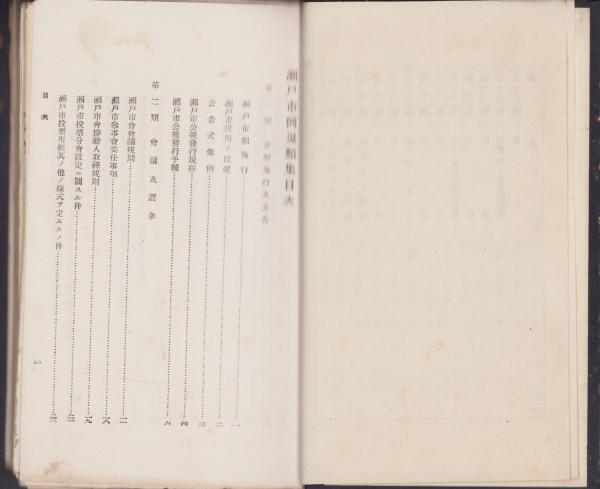 瀬戸市例規類集目次
第一類 市制施行及公告
瀬戸市制施行……一
瀬戸市役所ノ位置……二
公告式條例……三
瀬戸市公報發行規程……四
瀬戸市公報發行手續……六
第二類 會議及選擧
瀬戸市會會議規則……一一
瀬戸市參事會委任事項……一八
瀬戸市會傍聽人取締規則……一九
瀬戸市投票分會設定ニ關スル件
瀬戸市投票用紙其ノ他ノ樣式ヲ定ムルノ件
目次
一